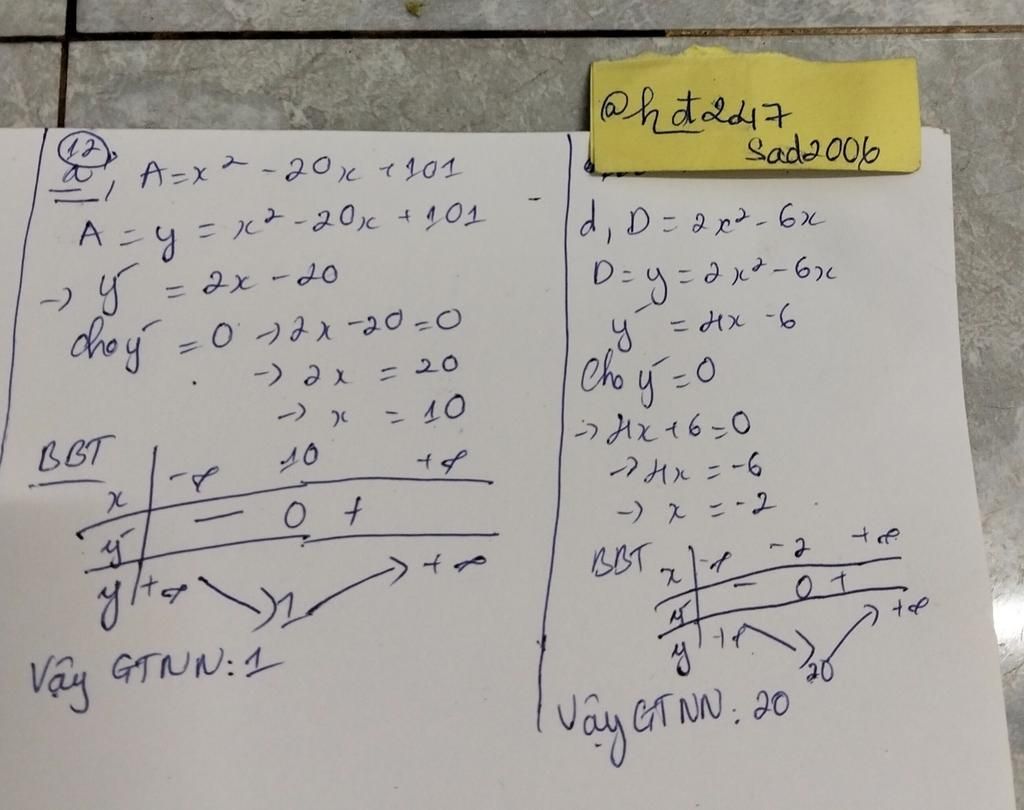 @hđt247
Sad2006
12
a, A = x² - 20x + 101
A = y = x² - 20x + 101
→ y' = 2x - 20
Cho y' = 0 → 2x - 20 = 0
→ 2x = 20
→ x = 10
BBT
x -∞ 10 +∞
y' - 0 +
y +∞ 1 +∞
Vậy GTNN: 1
d, D = 2x² - 6x
D = y = 2x² - 6x
y' = 4x - 6
Cho y' = 0
→ 4x + 6 = 0
→ 4x = -6
→ x = -2
BBT
x -∞ -2 +∞
y' - 0 +
y +∞ 20 +∞
Vậy GTNN: 20